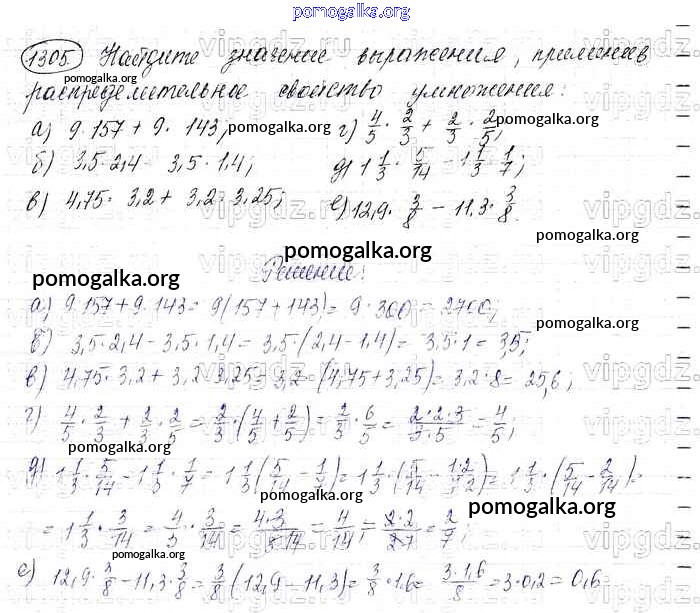 pomogalka.org
1305. Найдите значение выражения, применив
pomogalka.org
распределительное свойство умножения:
а) 9·157 + 9·143; pomogalka.org г) 4/5 · 2/3 + 2/3 · 2/5; pomogalka.org
б) 3,5·2,4 − 3,5·1,4; д) 1 1/3 · 5/14 − 1 1/3 · 1/7;
в) 4,75·3,2 + 3,2·3,25; е) 12,9 · 3/8 − 11,3 · 3/8.
pomogalka.org
pomogalka.org
pomogalka.org
Решение:
а) 9·157+9·143= 9(157+143)= 9·300 = 2700;
pomogalka.org
б) 3,5·2,4 − 3,5·1,4 = 3,5·(2,4−1,4)= 3,5·1= 3,5;
в) 4,75·3,2 + 3,2·3,25 = 3,2·(4,75+3,25)= 3,2·8= 25,6;
г) 4/5 · 2/3 + 2/3 · 2/5 = 2/3 · (4/5 + 2/5) = 2/3 · 6/5 = 2·2·3/3·5 = 4/5;
pomogalka.org
pomogalka.org
д) 1 1/3 · 5/14 − 1 1/3 · 1/7 = 1 1/3 (5/14 − 1/7) = 1 1/3 · (5/14 − 1·2/7·2) = 1 1/3 · (5/14 − 2/14) =
pomogalka.org
pomogalka.org
= 1 1/3 · 3/14 = 4/3 · 3/14 = 4·3/3·14 = 4/14 = 2·2/2·7 = 2/7;
pomogalka.org
е) 12,9 · 3/8 − 11,3 · 3/8 = 3/8 (12,9 − 11,3) = 3/8 · 1,6 = 3·1,6/8 = 3·0,2 = 0,6
pomogalka.org
pomogalka.org